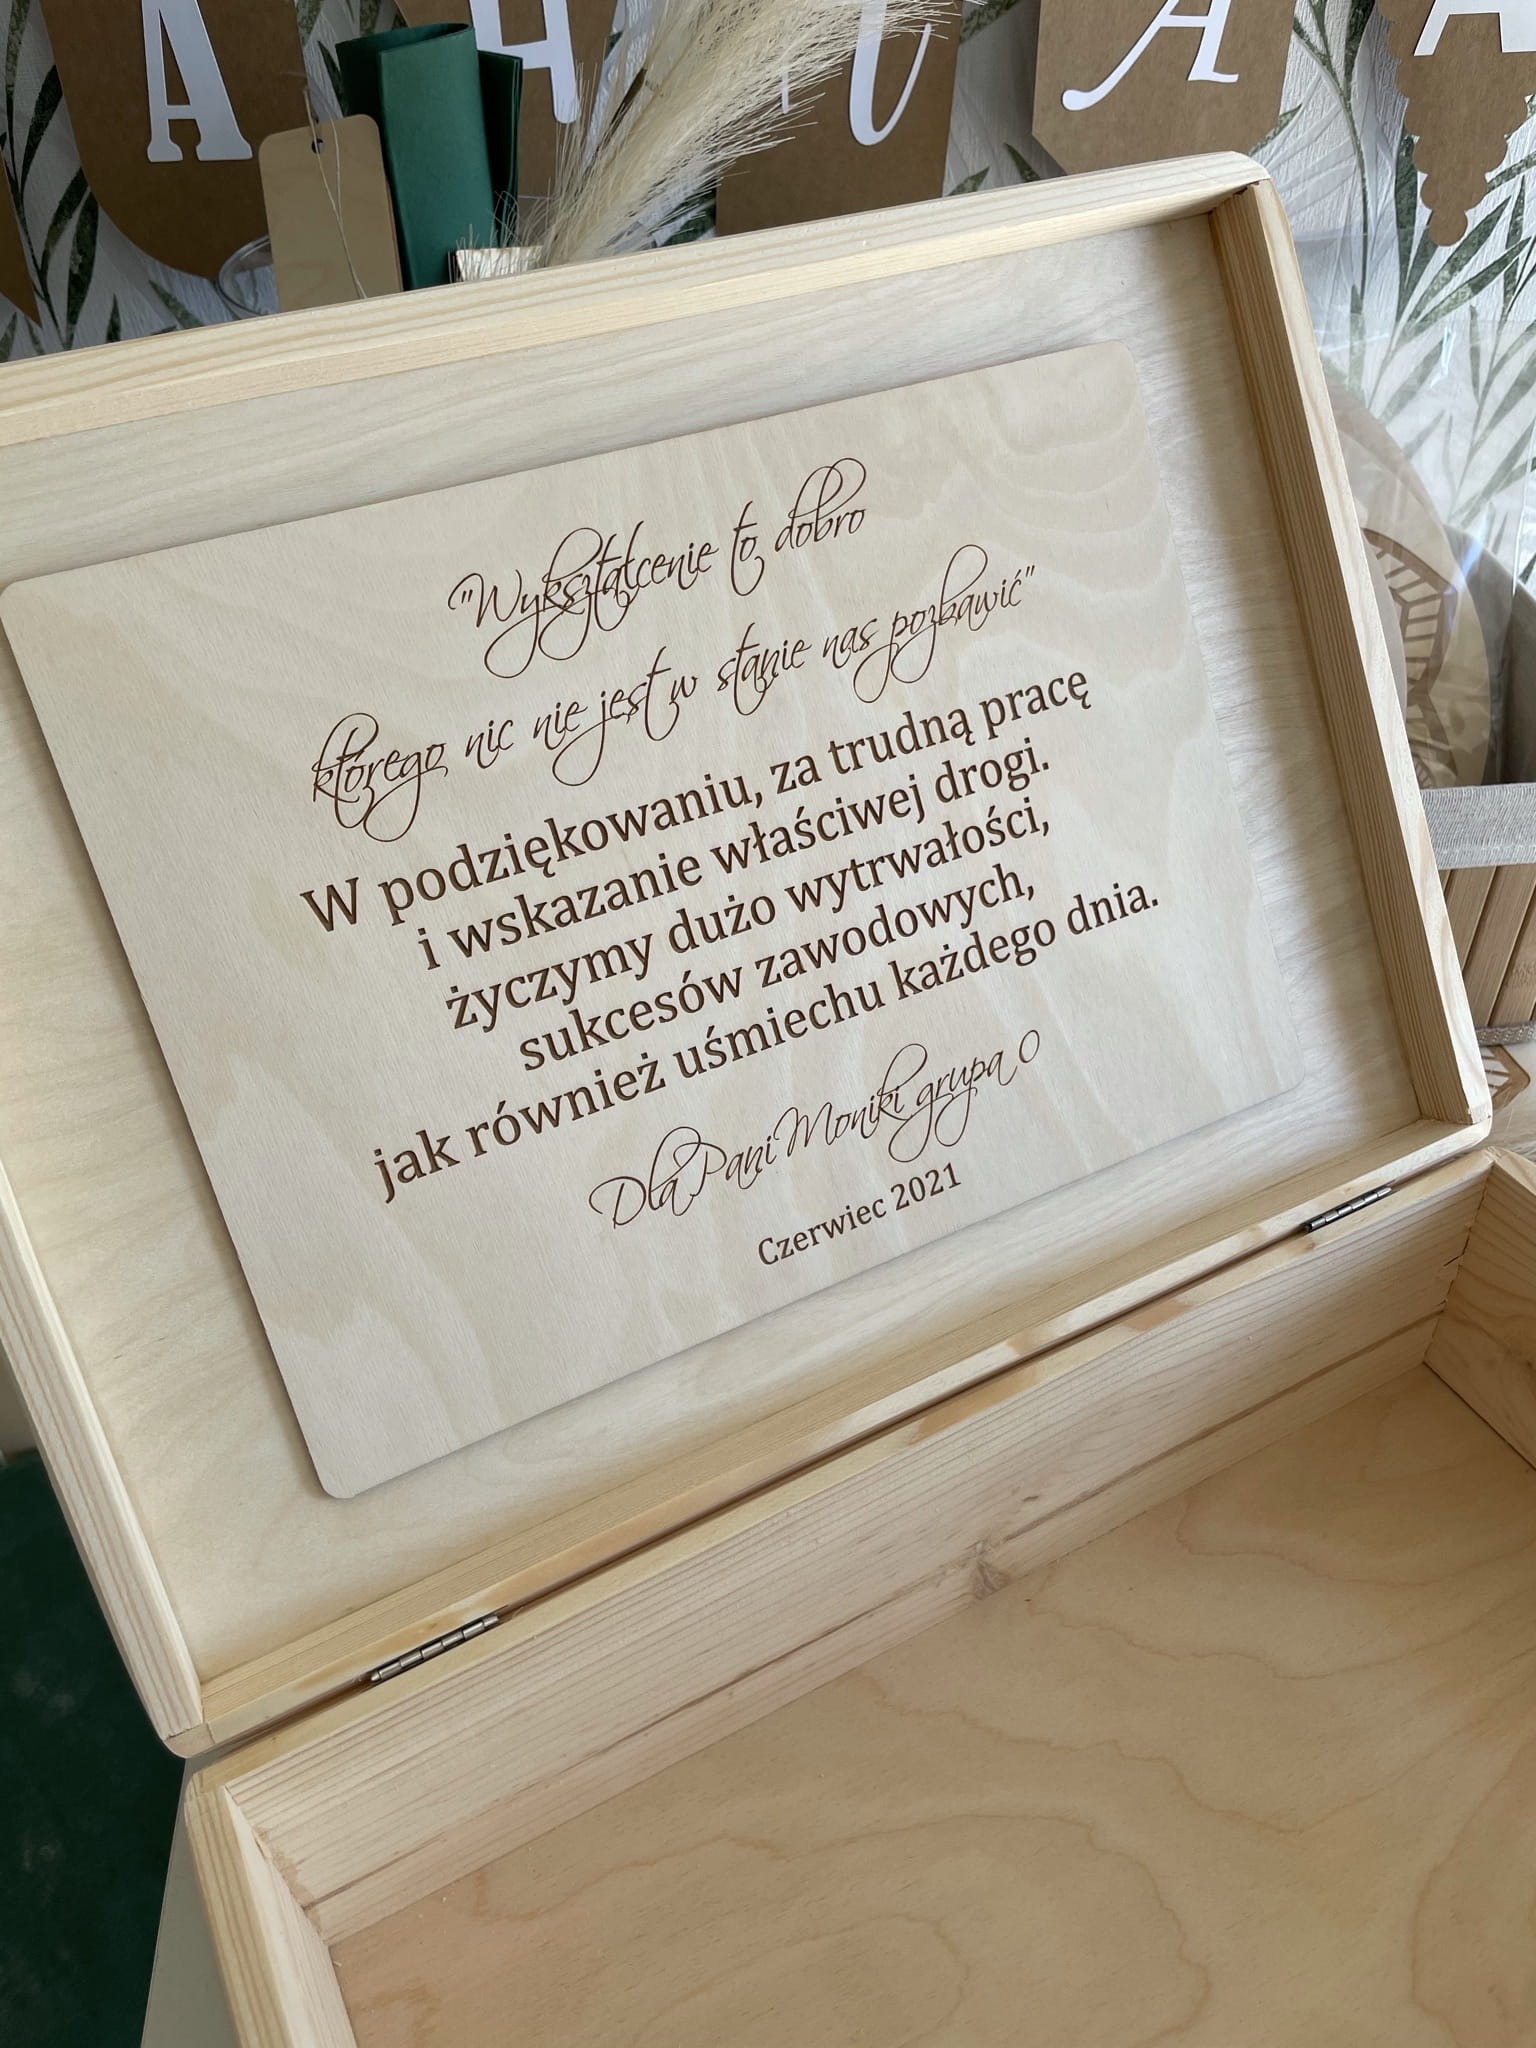 A H A A
"Wykształcenie to dobro
którego nic nie jest w stanie nas pozbawić"
W podziękowaniu, za trudną pracę
i wskazanie właściwej drogi.
życzymy dużo wytrwałości,
sukcesów zawodowych,
jak również uśmiechu każdego dnia.
Dla Pani Moniki grupa 0
Czerwiec 2021